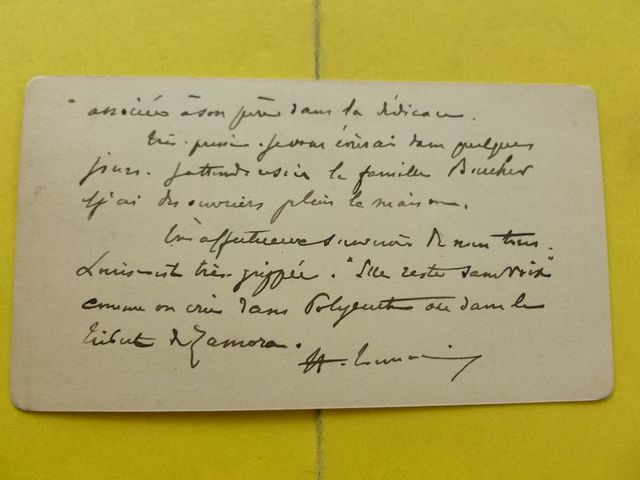 associées à son père dans la dédicace.
Très pressé. Je vous écrirai dans quelques
jours. J'attends ici la famille Boucher
& j'ai des ouvriers plein la maison.
Très affectueux souvenirs de nous tous.
Louise est très grippée. "Elle reste sans voix"
comme on crie dans Polyeucte ou dans le
Tribut de Zamora.